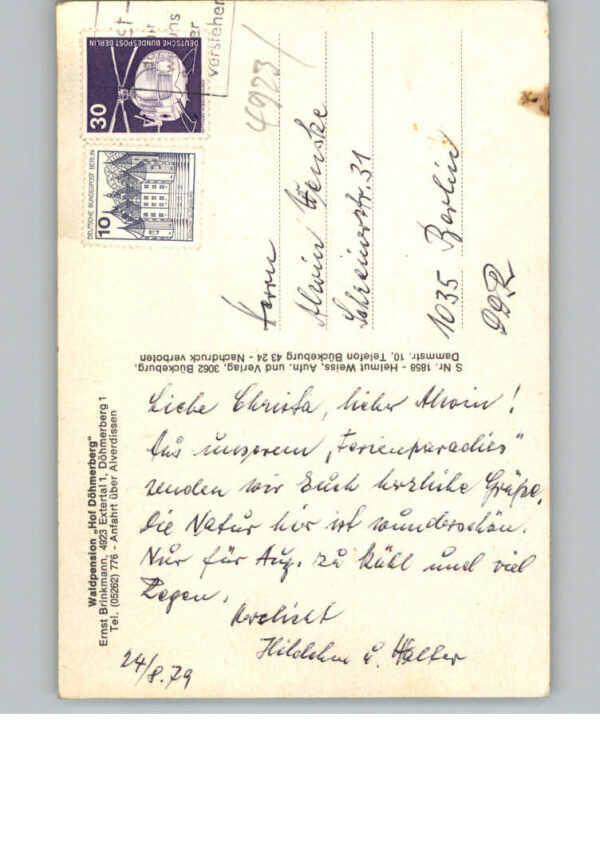 Waldpension „Hof Döhmerberg"
Ernst Brinkmann, 4923 Extertal 1, Döhmerberg 1
Tel. (05262) 776 - Anfahrt über Alverdissen
Liebe Christa, lieber Alwin!
Aus unserem „Ferienparadies"
senden wir Euch herzliche Grüße.
Die Natur hier ist wunderschön.
Nur für Aug. zu kühl und viel
Regen.
Herzlichst
Hildchen u. Walter
24/8.79
S Nr. 1858 - Helmut Weiss, Aufn. und Verlag, 3062 Bückeburg,
Dammstr. 10, Telefon Bückeburg 43 24 - Nachdruck verboten
DEUTSCHE BUNDESPOST BERLIN
30
DEUTSCHE BUNDESPOST BERLIN
10
uns
verstehen
4923/
Herrn
Alwin
Schreinerstr. 31
1035 Berlin
DDR